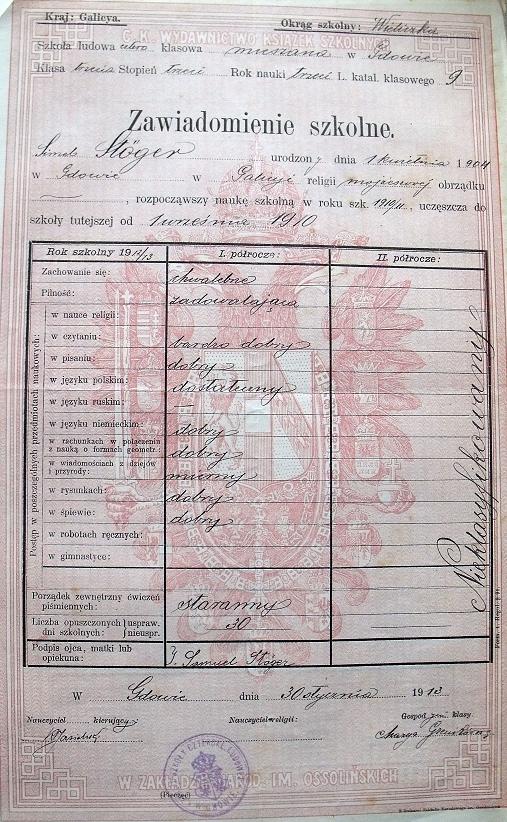 Kraj: Galicya. Okrąg szkolny: Wieliczka
C. K. WYDAWNICTWO KSIĄŻEK SZKOLNYCH
Szkoła ludowa klasowa mieszana w Gdowie
Klasa trzecia Stopień trzeci Rok nauki trzeci L. katal. klasowego 9
Zawiadomienie szkolne.
Stöger urodzony dnia 1 kwietnia 1904
w Gdowie w Galicyi religii mojżeszowej obrządku
, rozpocząwszy naukę szkolną w roku szk. 1910/11, uczęszcza do
szkoły tutejszej od 1 września 1910
Rok szkolny 1912/13 I. półrocze: II. półrocze:
Zachowanie się: chwalebne
Pilność: zadowalająca
Postęp w poszczególnych przedmiotach naukowych:
w nauce religii:
w czytaniu: bardzo dobry
w pisaniu: dobry
w języku polskim: dostateczny
w języku ruskim: —
w języku niemieckim: dobry
w rachunkach w połączeniu z nauką o formach geometr.: dobry
w wiadomościach z dziejów i przyrody: mierny
w rysunkach: dobry
w śpiewie: dobry
w robotach ręcznych:
w gimnastyce:
Nieklasyfikowany
Porządek zewnętrzny ćwiczeń piśmiennych: staranny
Liczba opuszczonych dni szkolnych: uspraw. 30
nieuspr.
Podpis ojca, matki lub opiekuna: Samuel Stöger
W Gdowie dnia 30 stycznia 1913
Nauczyciel kierujący Nauczyciel religii: Gospod. klasy
(Pieczęć)
W ZAKŁADZIE NAROD. IM. OSSOLIŃSKICH